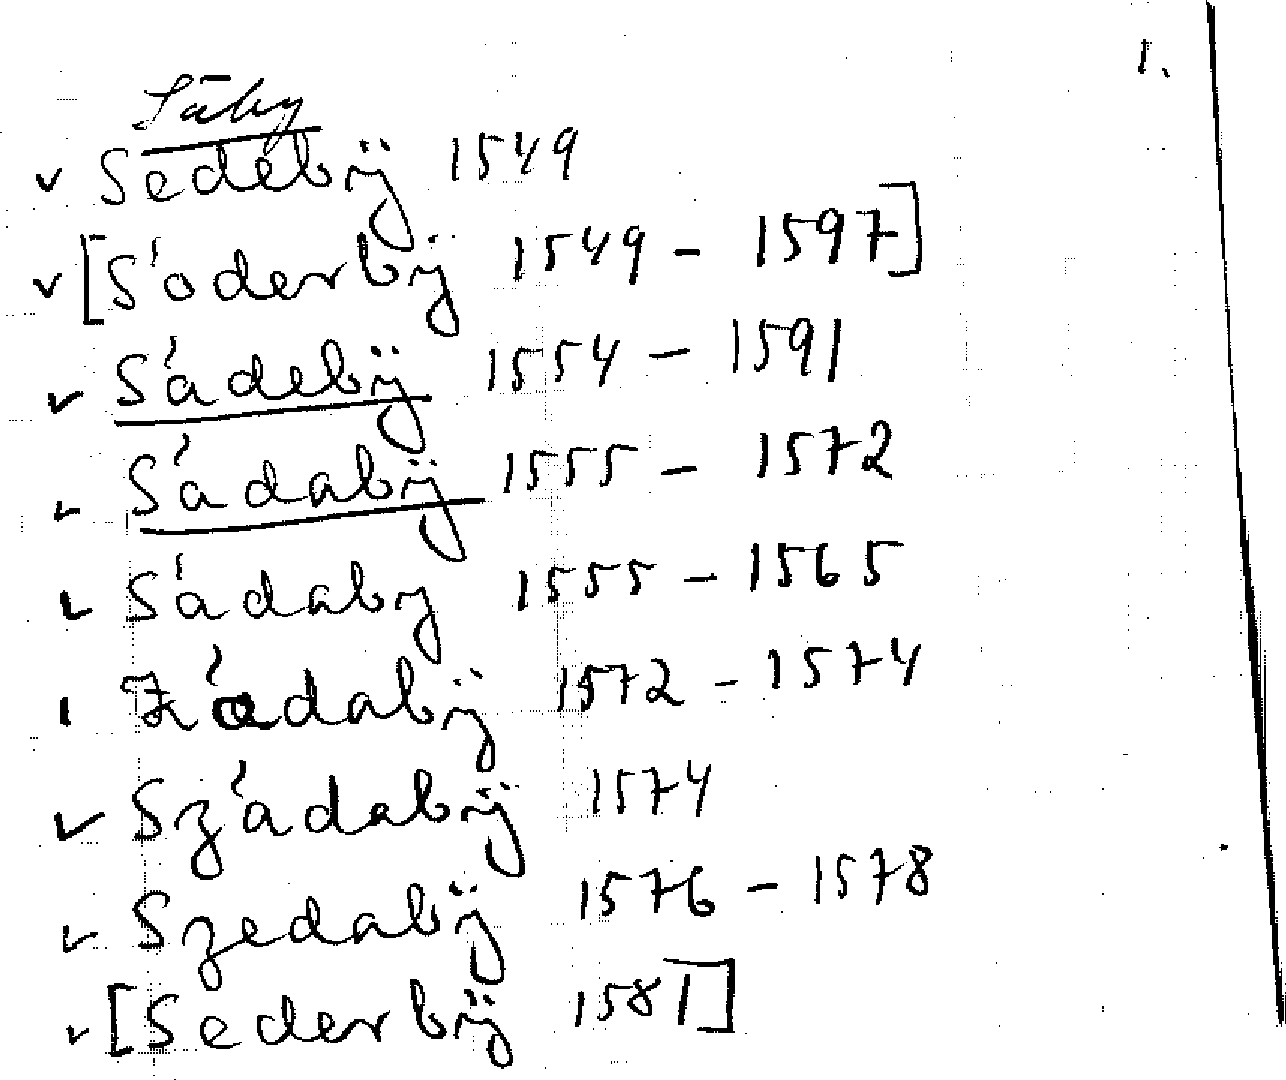 1.
Säby
v Sedebÿ 1549
v [Söderbÿ 1549 – 1597]
v Sádebÿ 1554 – 1591
v Sádabÿ 1555 – 1572
v Sádaby 1555 – 1565
ı Zádabÿ 1572 – 1574
v Szádabÿ 1574
v Szedabÿ 1576 – 1578
v [Sederbÿ 1581]